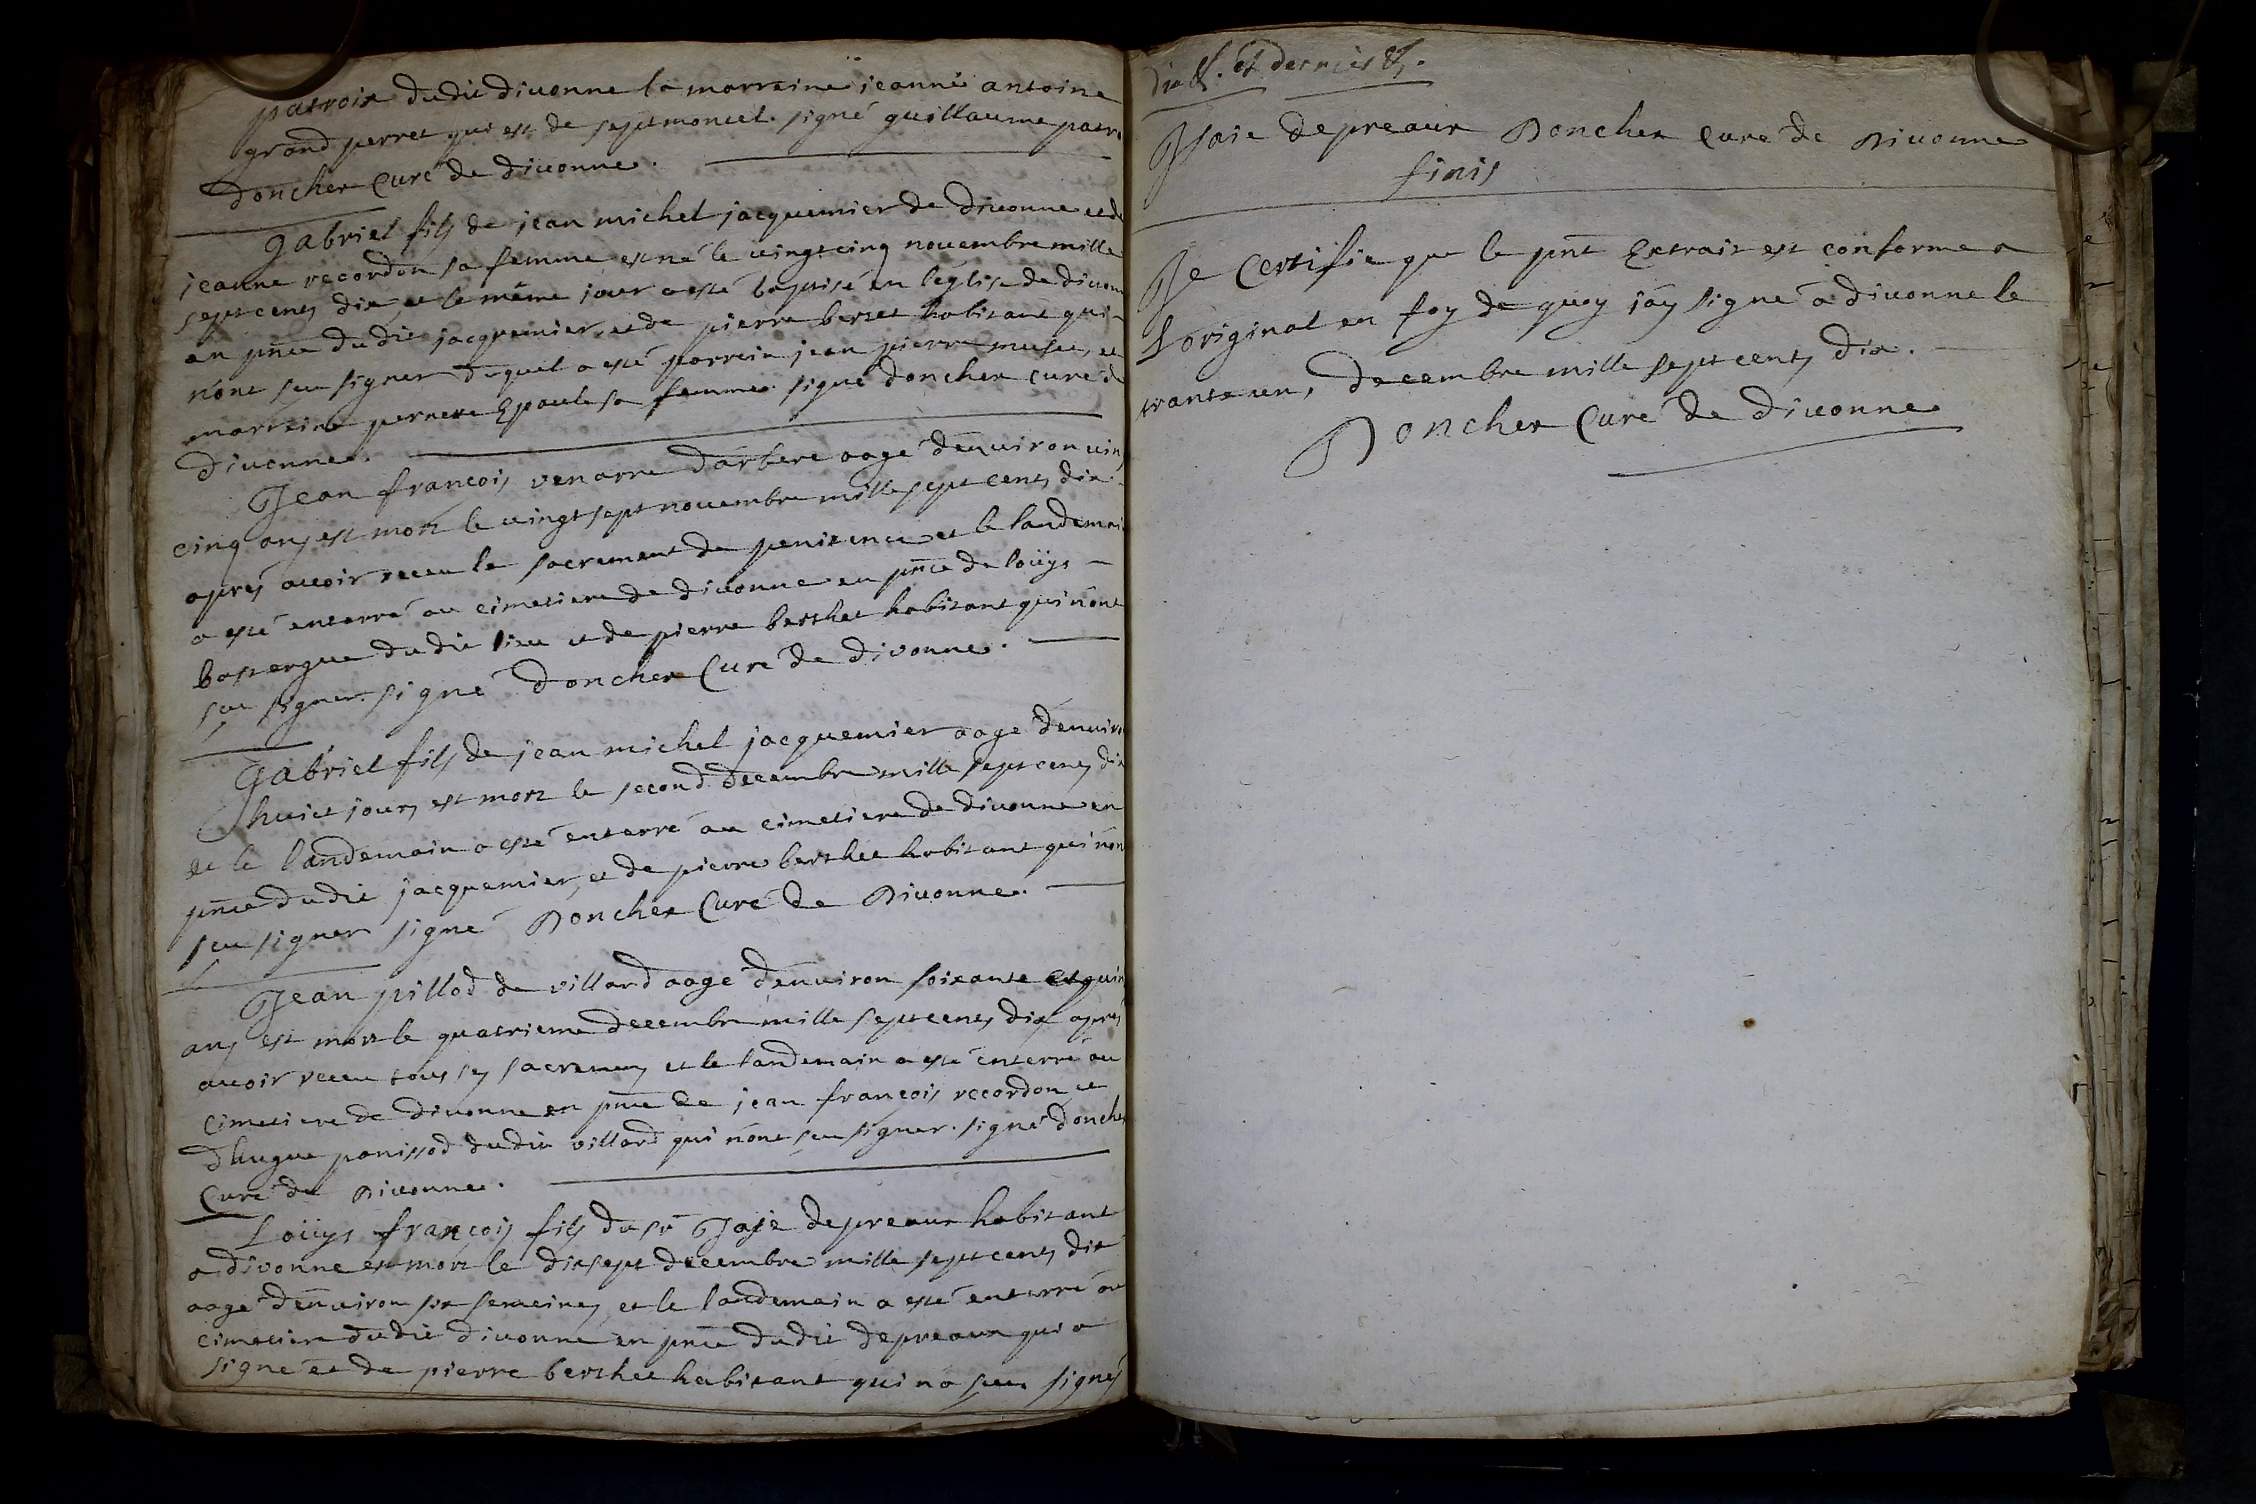 patroix dudit divonne la marraine jeanne antoine
grand perret qui est de septmoncel. signé guillaume patro
doncher Curé de divonne.
Gabriel fils de jean michel jacquemier de divonne et de
jeanne recordon sa femme est né le vingtcinq novembre mille
sept cens dix, et le même jour a esté baptisé en l'église de divonne
en pnce dudit jacquemier, et de pierre bertet habitant qui
n'ont seu signer duquel a esté parrein jean pierre et
marreine pernete Epaule sa femme. signé doncher curé de
divonne.
Jean françois venarre d'arbere aagé d'environ vin
cinq ans est mort le vingt sept novembre mille sept cens dix
apres avoir receu le sacrement de penitence et le landemai
a esté enterré au cimetiere de divonne en pnce de loüys
bastergue dudit lieu et de pierre berthet habitant qui n'ont
seu signer. signé doncher Curé de divonne.
Gabriel fils de jean michel jacquemier aagé d'enviro
huict jours est mort le second decembre mille sept cens dix
et le landemain a esté enterré au cimetiere de divonne en
pnce dudit jacquemier, et de pierre berthet habitant qui n'on
seu signer signé Doncher Curé de Divonne.
Jean pillod de villard aagé d'environ soixante et quin
ans est mort le quatrieme decembre mille sept cens dix apres
avoir receu tous ses sacremens et le landemain a esté enterré au
cimetiere de divonne en pnce de jean françois recordon et
d'hugue panissod dudit villard qui n'ont seu signer. signé donche
Curé de Divonne.
Loüys françois fils du sr Isaïe depreaux habitant
a divonne est mort le dixsept decembre mille sept cens dix
aagé d'environ six semeines, et le landemain a esté enterré au
cimetiere dudit divonne en pnce dudit depreaux qui a
signé et de pierre berthet habitant qui n'a seu signés
et dernier
Isaie depreaux Doncher Curé de Divonne
finis
Je Certifie que le pnt Extrait est conforme a
L'original en foy de quoy j'ay signé a divonne le
trante un, decembre mille sept cens dix.
Doncher Curé de divonne